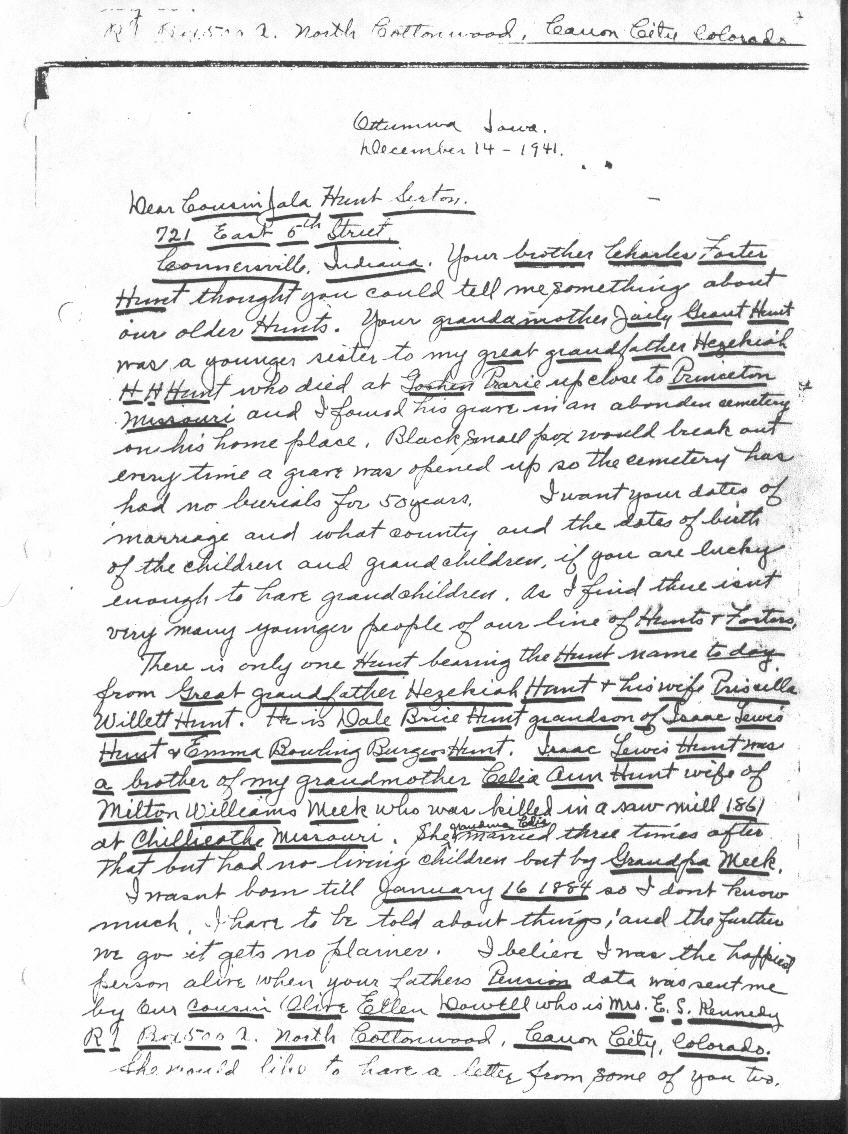 Box 500 2. North Cottonwood, Canon City Colorado
Ottumwa Iowa.
December 14 - 1941.
Dear Cousin Jala Hunt Sexton.
721 East 5th Street,
Connersville, Indiana. Your brother Charles Foster
Hunt thought you could tell me something about
our older Hunts. Your grandamother Jaily Grant Hunt
was a younger sister to my great grandfather Hezekiah
H H Hunt who died at Goshen Prarie up close to Princeton
Missouri and I found his grave in an abonden cemetery
on his home place. Black small pox would break out
every time a grave was opened up so the cemetery has
had no burials for 50 years. I want your dates of
marriage and what county and the dates of birth
of the children and grandchildren, if you are lucky
enough to have grandchildren. As I find there isnt
very many younger people of our line of Hunts & Fosters.
There is only one Hunt bearing the Hunt name today
from Great grandfather Hezekiah Hunt & his wife Priscilla
Willett Hunt. He is Dale Brice Hunt grandson of Isaac Lewis
Hunt & Emma Bowling Burgess Hunt. Isaac Lewis Hunt was
a brother of my grandmother Celia Ann Hunt wife of
Milton Williams Meek who was killed in a saw mill 1861
at Chillicothe Missouri. She grandma Celia married three times after
that but had no living children but by Grandpa Meek.
I wasnt born till January 16 1884 so I dont know
much, I have to be told about things, and the further
we go it gets no plainer. I believe I was the happiest
person alive when your fathers Pension data was sent me
by our cousin Olive Ellen Dowell who is Mrs. E. S. Kennedy
Box 500 2. North Cottonwood, Canon City, Colorado.
She would like to have a letter from some of you two.